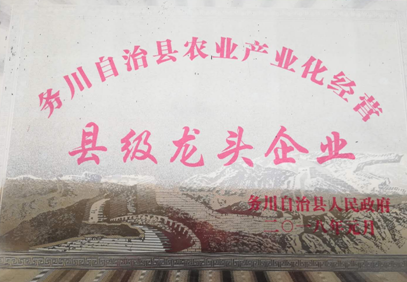 务川自治县农业产业化经营
县级龙头企业
务川自治县人民政府
二〇一八年元月